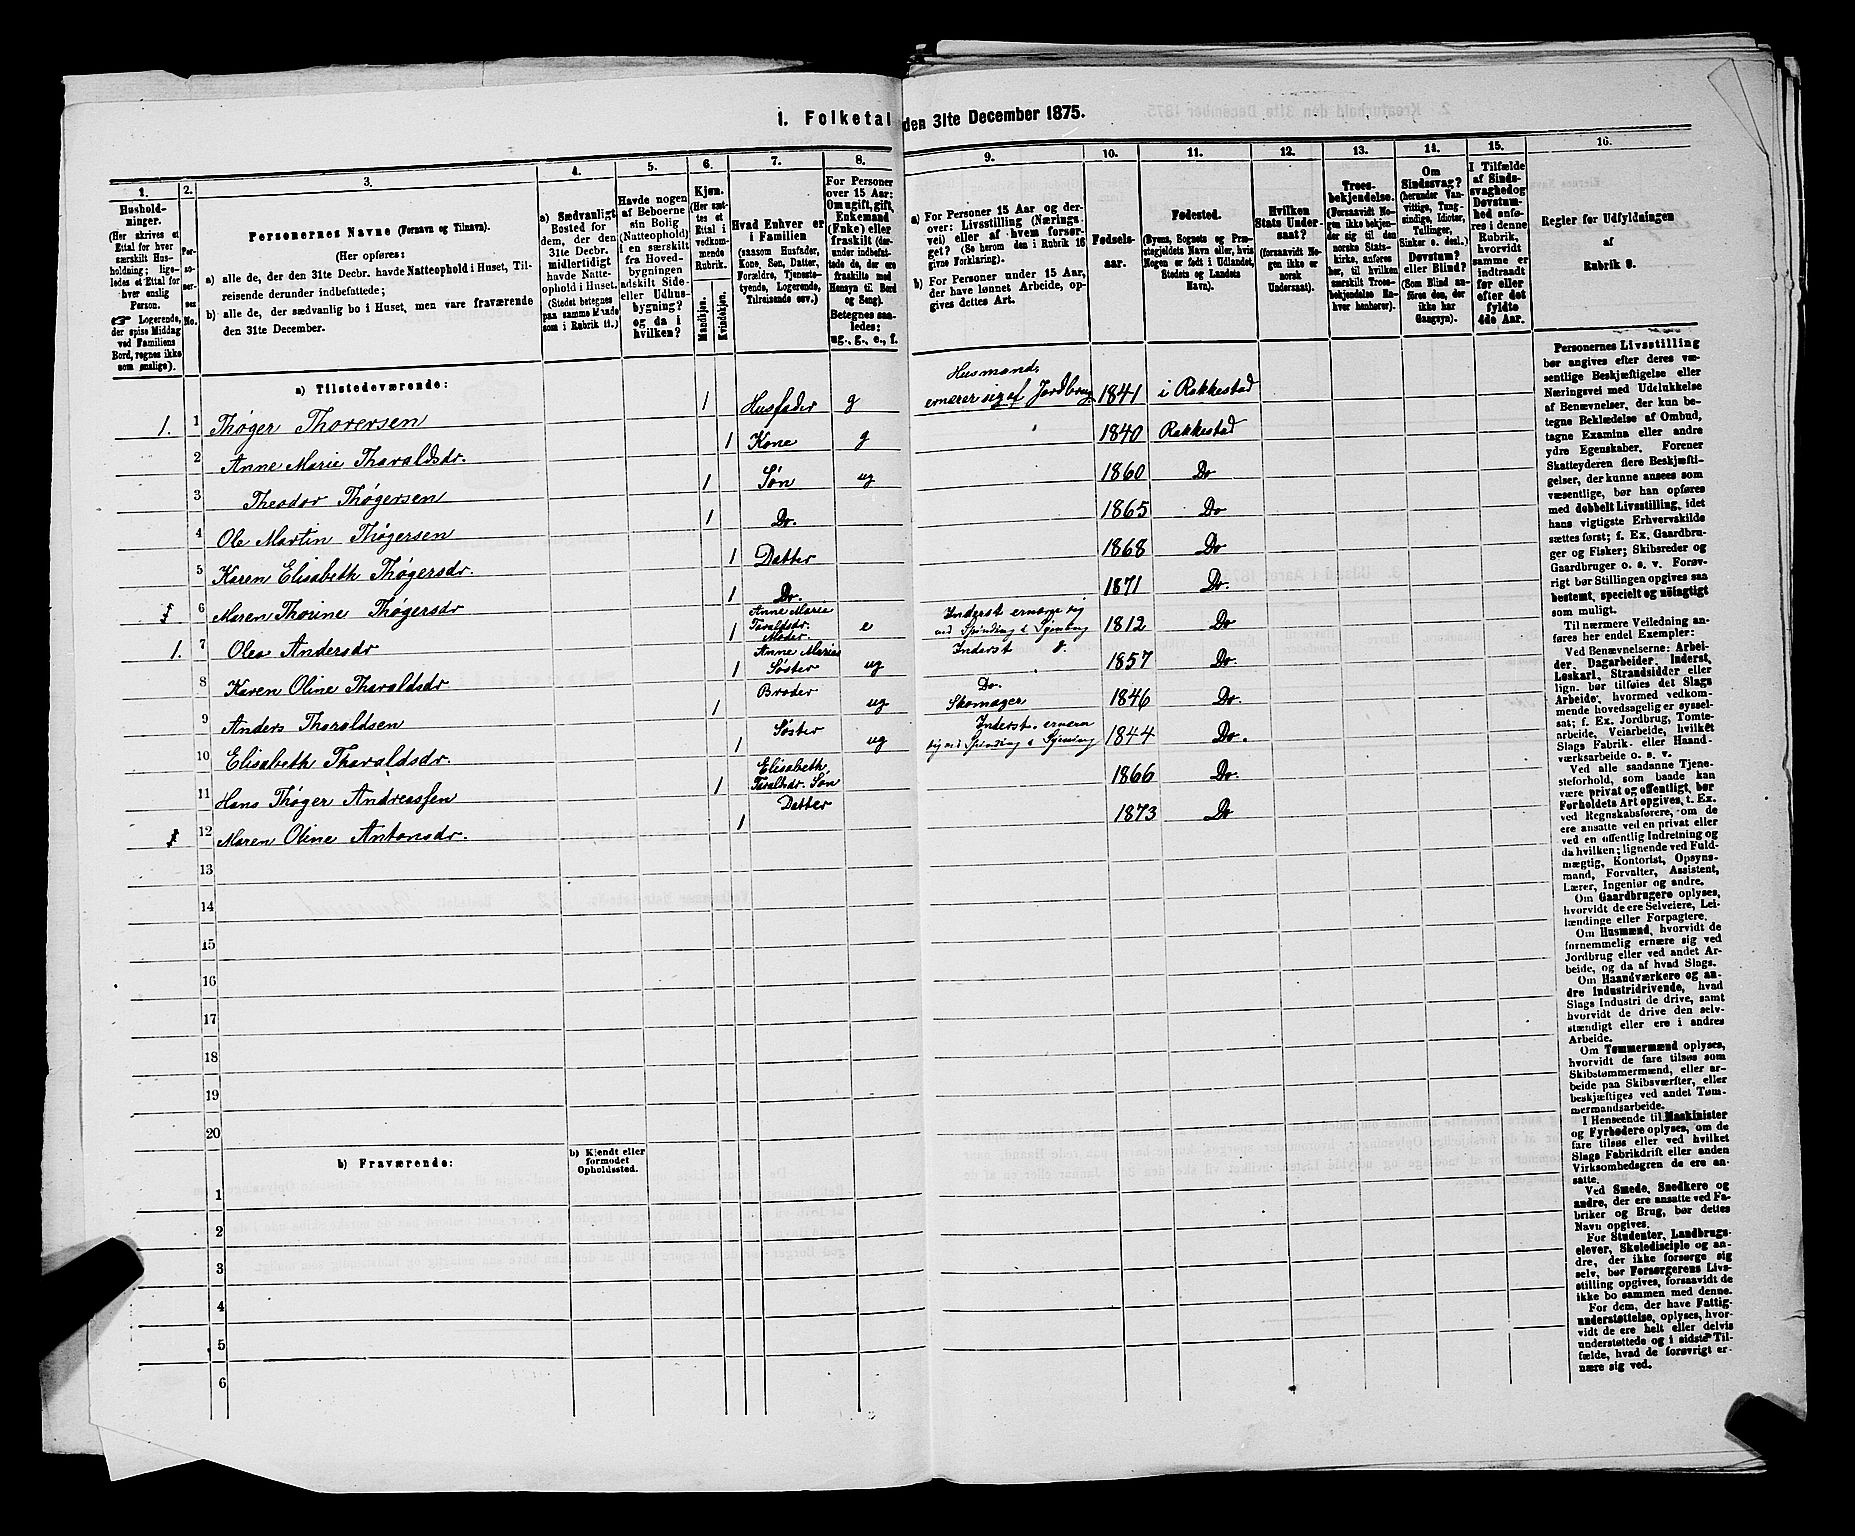 1. Folketal den 31te December 1875.
1. 2. 3. 4. 5. 6. 7. 8. 9. 10. 11. 12. 13. 14. 15. 16.
Hushold-
ninger.
(Her skrives et
Ettal for hver
særskilt Hus-
holdning; lige-
ledes et Ettal for
hver enslig
Person.
☞ Logerende,
der spise Middag
ved Familiens
Bord, regnes ikke
som enslige).
Per-
so-
ner-
nes
No.
Personernes Navne (Fornavn og Tilnavn).
(Her opføres:
a) alle de, der den 31te Decbr. havde Natteophold i Huset, Til-
reisende derunder indbefattede;
b) alle de, der sædvanlig bo i Huset, men vare fraværende
den 31te December.
a) Sædvanligt
Bosted for
dem, der den
31te Decbr.
midlertidigt
havde Natte-
ophold i Huset.
(Stedet betegnes
paa samme Maade
som i Rubrik 11.)
Havde nogen
af Beboerne
sin Bolig
(Natteophold)
i en særskilt
fra Hoved-
bygningen
adskilt Side-
eller Udhus-
bygning?
og da i
hvilken?
Kjøn.
(Her sæt-
tes et
Ettal i
vedkom-
mende
Rubrik.
Mandkjøn.
Kvindekjøn.
Hvad Enhver er
i Familien
(saasom Husfader,
Kone, Søn, Datter,
Forældre, Tjeneste-
tyende, Logerende,
Tilreisende osv.)
For Personer
over 15 Aar:
Om ugift, gift,
Enkemand
(Enke) eller
fraskilt (der-
under indbefat-
tede de, der ere
fraskilte med
Hensyn til Bord
og Seng).
Betegnes saa-
ledes:
ug., g., e., f.
a) For Personer 15 Aar og der-
over: Livsstilling (Nærings-
vei) eller af hvem forsør-
get? (Se herom den i Rubrik 16
givne Forklaring).
b) For Personer under 15 Aar,
der have lønnet Arbeide, op-
gives dettes Art.
Fødsels-
aar.
Fødested.
(Byens, Sognets og Præ-
stegjeldets Navn eller, hvis
Nogen er født i Udlandet,
Stedets og Landets
Navn).
Hvilken
Stats Under-
saat?
(forsaavidt No-
gen ikke er
norsk
Undersaat).
Troes-
bekjendelse.
(Forsaavidt No-
gen ikke bekjen-
der sig til den
norske Stats-
kirke, anføres
her, til hvilken
særskilt Troes-
bekjendelse En-
hver henhører).
Om
Sindssvag?
(herunder Van-
vittige, Tung-
sindige, Idioter,
Tullinger,
Sinker o. desl.)
Døvstum?
eller Blind?
(Som Blind an-
føres den, der
ikke har
Gangsyn).
I Tilfælde
af Sinds-
svaghed og
Døvstum-
hed anfø-
res i denne
Rubrik,
hvorvidt
samme er
indtraadt
før eller
efter det
fyldte
4de Aar.
Regler for Udfyldningen
af
Rubrik 9.
a) Tilstedeværende:
1. 1 Thøger Thorersen 1 Husfader g Husmand, ernærer sig af Jordbrug 1841 i Rakkestad
2 Anne Marie Tharaldsdr. 1 Kone g 1840 Rakkestad
3 Theodor Thøgersen 1 Søn ug 1860 Do
4 Ole Martin Thøgersen 1 Do. 1865 Do
5 Karen Elisabeth Thøgersdr. 1 Datter 1868 Do
6 Maren Thorine Thøgersdr 1 Do. 1871 Do.
1. 7 Olea Andersdr 1 Anne Marie Taraldsdr. Moder e Inderst ernære sig ved Spinding & Syening 1812 Do
8 Karen Oline Tharaldsdr 1 Anne Maries Søster ug Inderst 1857 Do.
9 Anders Tharaldsen 1 Broder ug Do. Skomager 1846 Do.
10 Elisabeth Tharaldsdr. 1 Søster ug Inderst. ernærer sig ved Spinding & Syening 1844 Do.
11 Hans Thøger Andreassen 1 Elisabeth Taraltsdr. Søn 1866 Do.
12 Maren Oline Antonsdr. 1 Datter 1873 Do
13
14
15
16
17
18
19
20
b) Fraværende:
b) Kjendt eller
formodet
Opholdssted.
1
2
3
4
5
6
Personernes Livsstilling
bør angives efter deres væ-
sentlige Beskjæftigelse eller
Næringsvei med Udelukkelse
af Benævnelser, der kun be-
tegne Beklædelse af Ombud,
tagne Examina eller andre
ydre Egenskaber. Forener
Skatteyderen flere Beskjæfti-
gelser, der kunne ansees som
væsentlige, bør han opføres
med dobbelt Livsstilling, idet
hans vigtigste Erhvervskilde
sættes først; f. Ex. Gaardbru-
ger og Fisker; Skibsreder og
Gaardbruger o. s. v. Forøv-
rigt bør Stillingen opgives saa
bestemt, specielt og nøiagtigt
som muligt.
Til nærmere Veiledning an-
føres her endel Exempler:
Ved Benævnelserne: Arbei-
der, Dagarbeider, Inderst,
Løskarl, Strandsidder eller
lign. bør tilføies det Slags
Arbeide, hvormed vedkom-
mende hovedsagelig er syssel-
sat; f. Ex. Jordbrug, Tomte-
arbeide, Veiarbeide, hvilket
Slags Fabrik- eller Haand-
værksarbeide o. s. v.
Ved alle saadanne Tjene-
steforhold, som baade kan
være privat og offentligt, bør
Forholdets Art opgives, t. Ex.
ved Regnskabsførere, om de
ere ansatte ved en privat eller
ved en offentlig Indretning og
da hvilken; lignende ved Fuld-
mægtig, Kontorist, Opsyns-
mand, Forvalter, Assistent,
Lærer, Ingeniør og andre.
Om Gaardbrugere oplyses,
hvorvidt de ere Selveiere, Lei-
lændinge eller Forpagtere.
Om Husmænd, hvorvidt de
fornemmelig ernære sig ved
Jordbrug eller ved andet Ar-
beide, og da af hvad Slags.
Om Haandværkere og an-
dre Industridrivende, hvad
Slags Industri de drive, samt
hvorvidt de drive den selv-
stændigt eller ere i andres
Arbeide.
Om Tømmermænd oplyses,
hvorvidt de fare tilsøs som
Skibstømmermænd, eller ar-
beide paa Skibsværfter, eller
beskjæftiges ved andet Tøm-
mermandsarbeide.
I Henseende til Maskinister
og Fyrbødere oplyses, om de
fare tilsøs eller ved hvilket
Slags Fabrikdrift eller anden
Virksomhedsgren de ere an-
satte.
Ved Smede, Snedkere og
andre, der ere ansatte ved Fa-
briker og Brug, bør dettes
Navn opgives.
For Studenter, Landbrugs-
elever, Skoledisciple og an-
dre, der ikke forsørge sig
selv, bør Forsørgerens Livs-
stilling opgives, forsaavidt de
ikke bo sammen med denne.
For dem, der have Fattig-
understøttelse, oplyses, hvor-
vidt de ere helt eller delvis
understøttede og i sidste Til-
fælde, hvad de forøvrigt er-
nære sig ved.